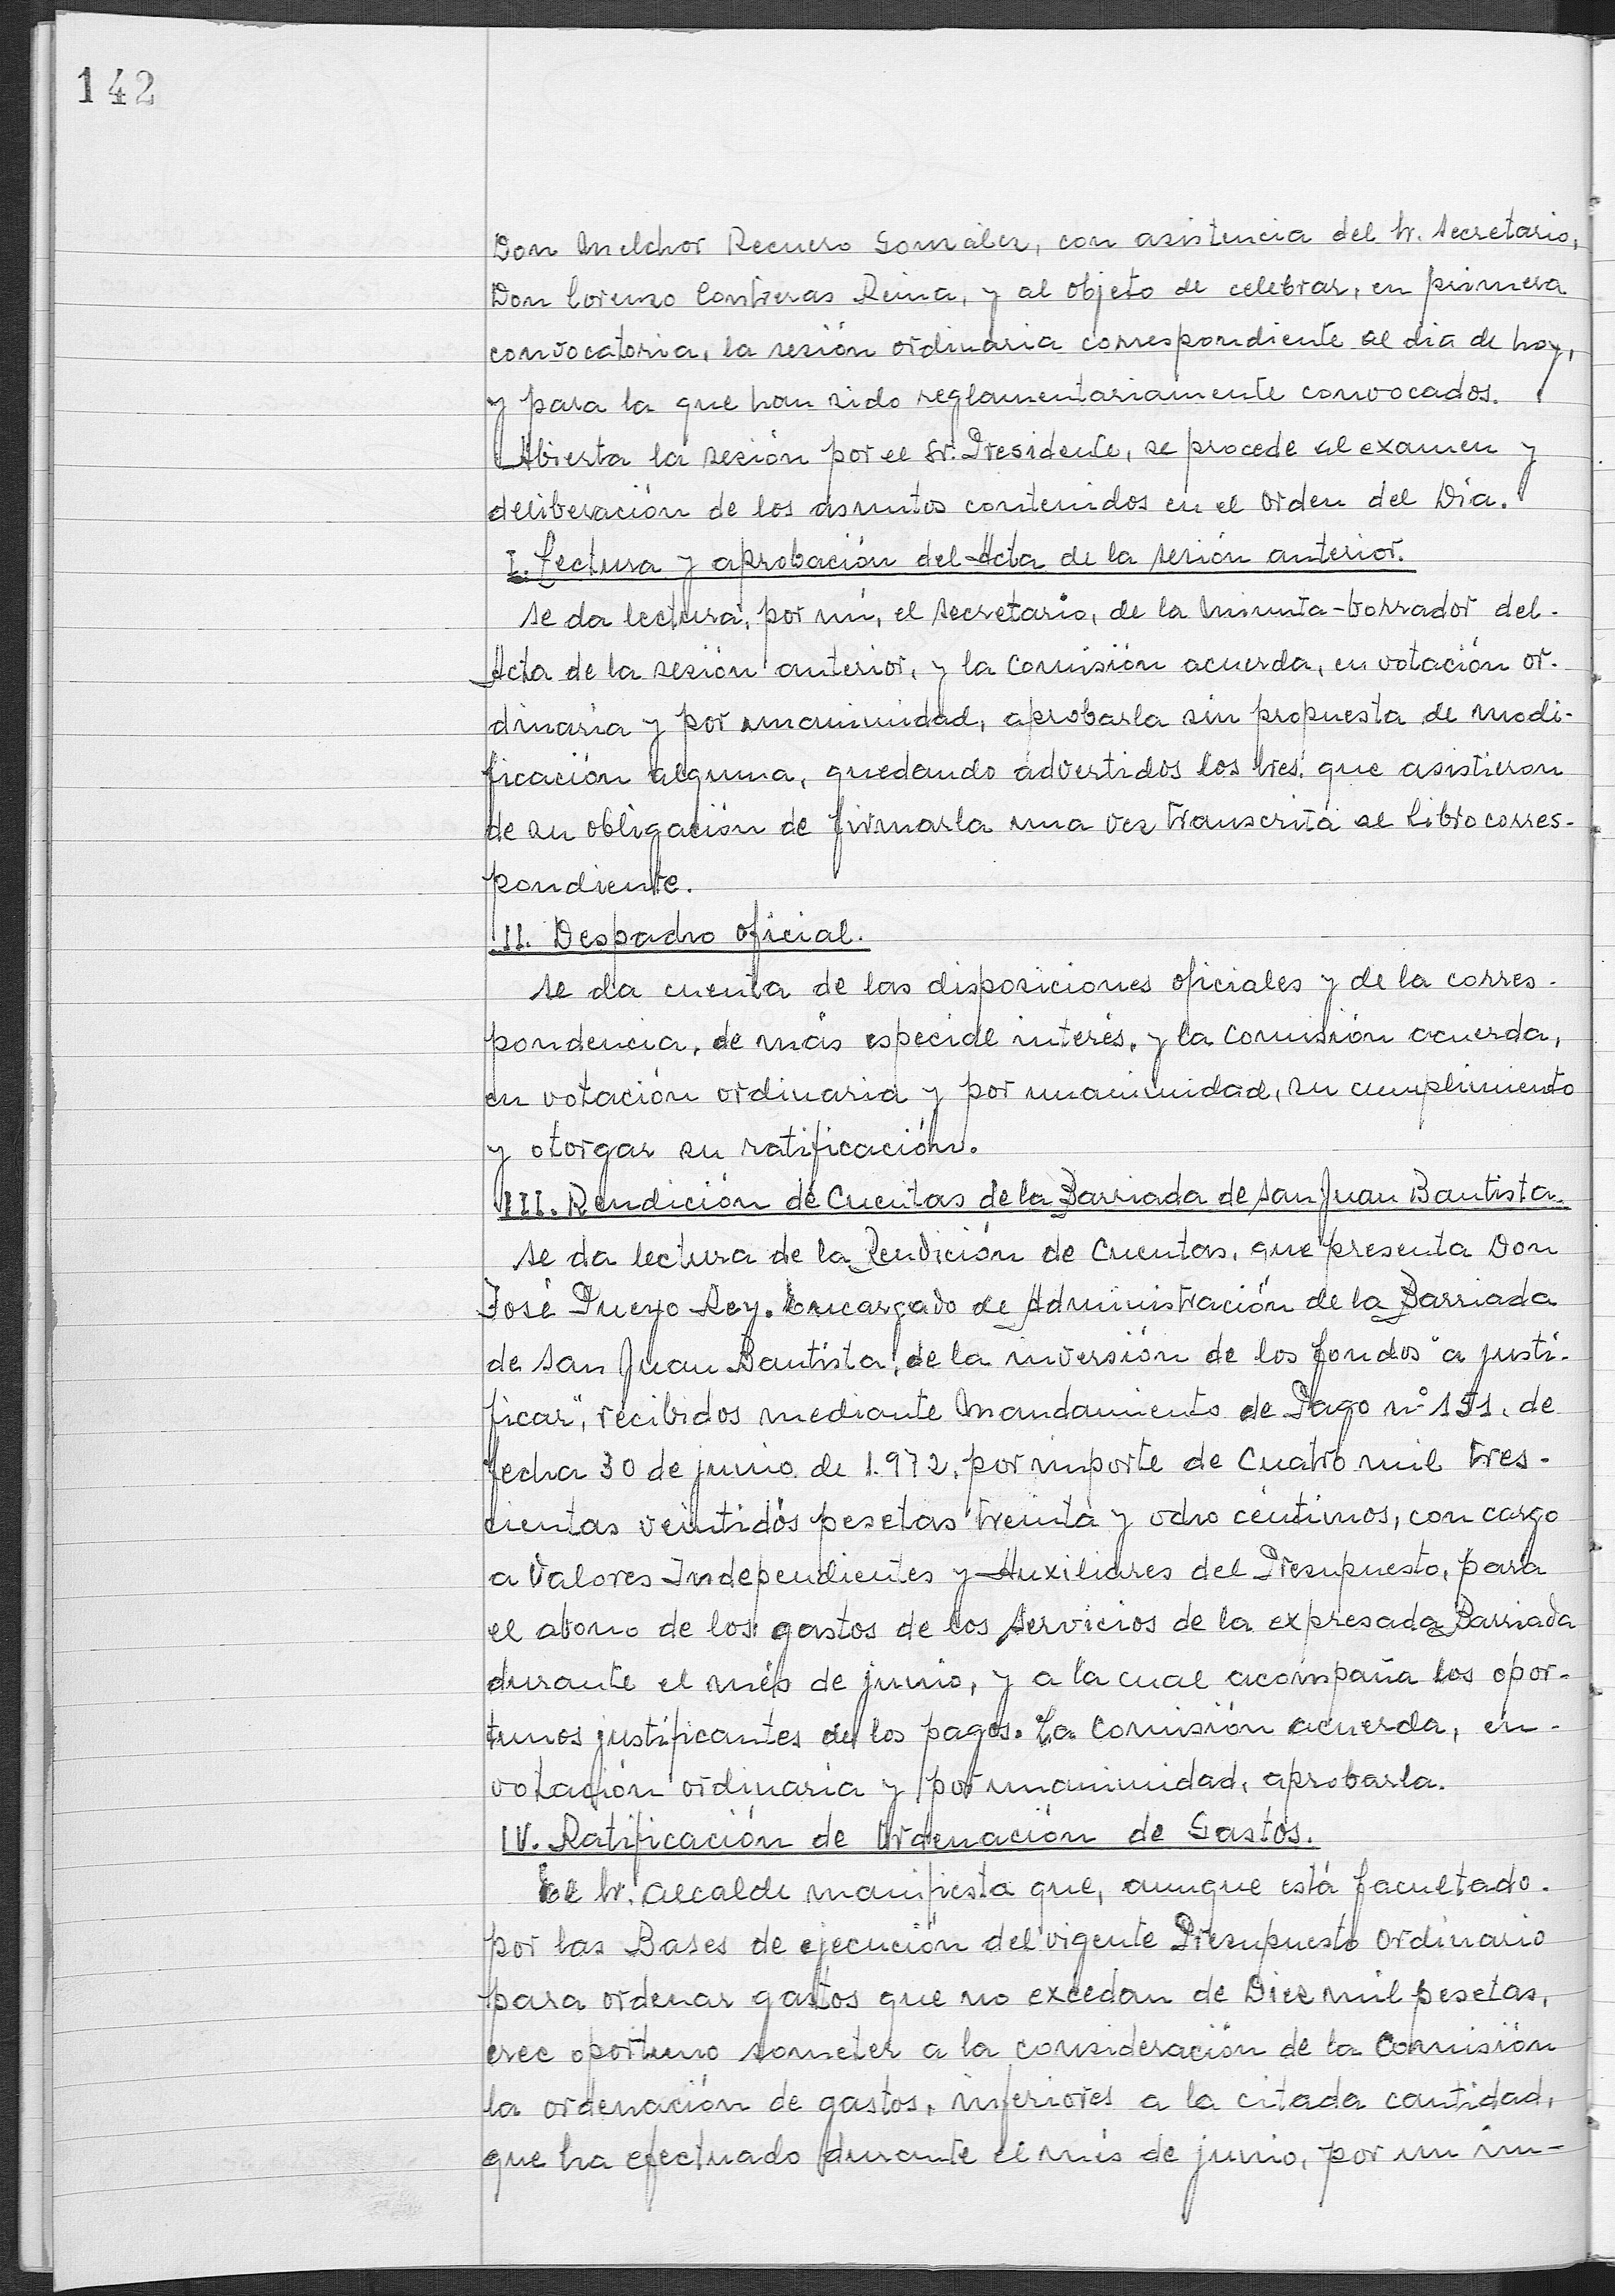 142
Don Melchor Recuero González, con asistencia del Sr. Secretario,
Don Lorenzo Contreras Reina, y al objeto de celebrar, en primera
convocatoria, la sesión ordinaria correspondiente al dia de hoy,
y para la que han sido reglamentariamente convocados.
Abierta la sesión por el Sr. Presidente, se procede al examen y
deliberación de los asuntos contenidos en el Orden del Día.
I. Lectura y aprobación del Acta de la sesión anterior.
Se da lectura, por mí, el Secretario, de la Minuta-borrador del
Acta de la sesión anterior, y la Comisión acuerda, en votación or-
dinaria y por unanimidad, aprobarla sin propuesta de modi-
ficación alguna, quedando advertidos los Sres. que asistieron
de su obligación de firmarla una vez transcrita al Libro corres-
pondiente.
II. Despacho oficial.
Se da cuenta de las disposiciones oficiales y de la corres-
pondencia, de más especial interés, y la Comisión acuerda,
en votación ordinaria y por unanimidad, su cumplimiento
y otorgar su ratificación.
III. Rendición de Cuentas de la Barriada de San Juan Bautista.
Se da lectura de la Rendición de Cuentas, que presenta Don
José Pueyo Rey. Encargado de Administración de la Barriada
de San Juan Bautista, de la inversión de los fondos "a justi-
ficar", recibidos mediante Mandamiento de Pago nº 151, de
fecha 30 de junio de 1.972, por importe de Cuatro mil tres-
cientas veintidós pesetas treinta y ocho céntimos, con cargo
a Valores Independientes y Auxiliares del Presupuesto, para
el abono de los gastos de los Servicios de la expresada Barriada
durante el més de junio, y a la cual acompaña los opor-
tunos justificantes de los pagos. La Comisión acuerda, en
votación ordinaria y por unanimidad, aprobarla.
IV. Ratificación de Ordenación de Gastos.
El Sr. Alcalde manifiesta que, aunque está facultado
por las Bases de ejecución del vigente Presupuesto Ordinario
para ordenar gastos que no excedan de Diez mil pesetas,
cree oportuno someter a la consideración de la Comisión
la ordenación de gastos, inferiores a la citada cantidad,
que ha efectuado durante el més de junio, por un im-